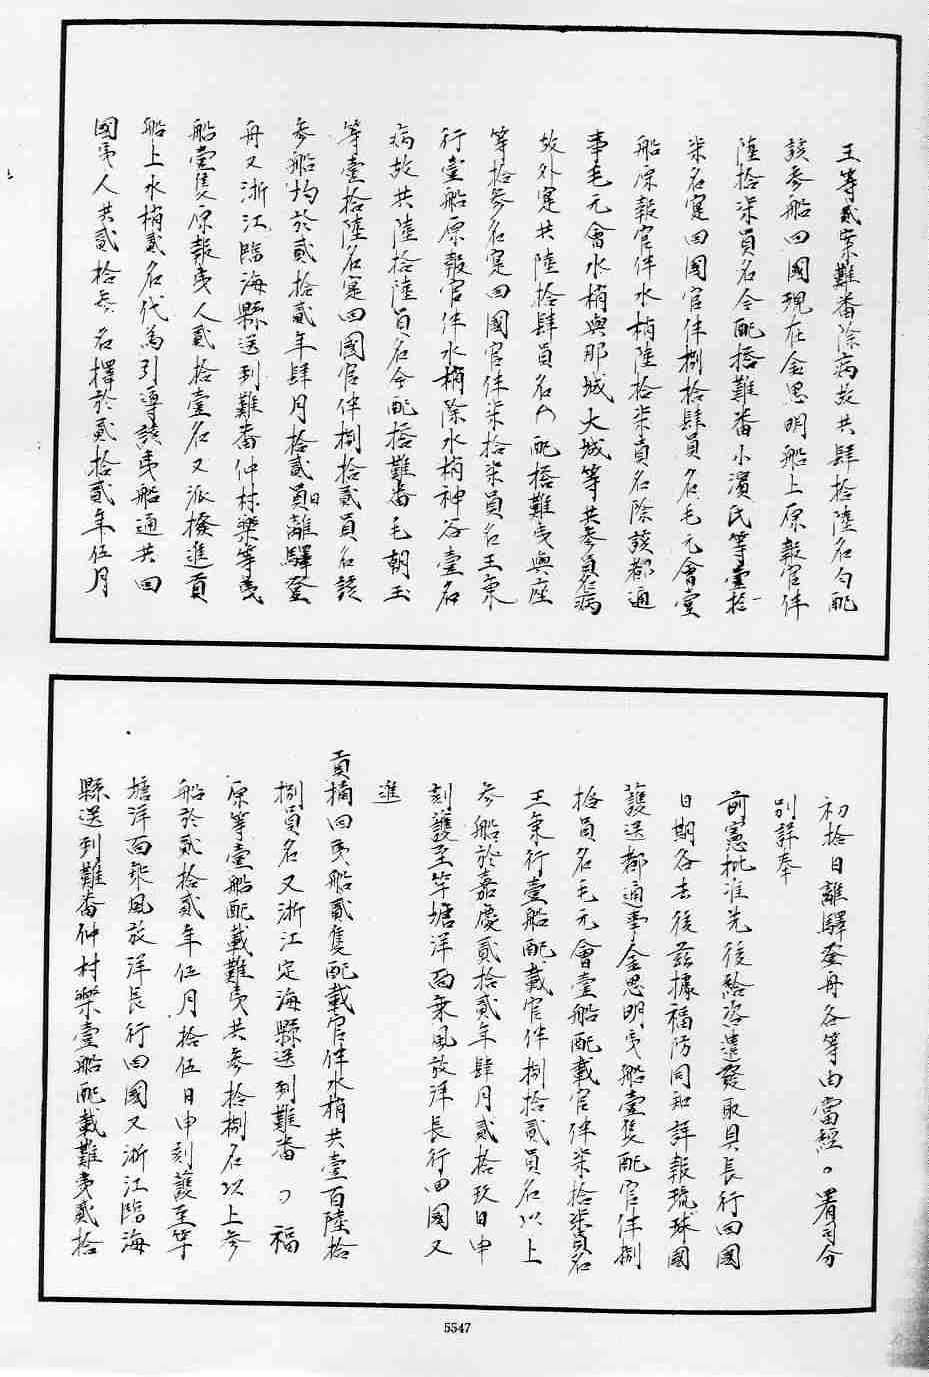 王等貳案難番除病故共肆拾陸名勻配
該參船回國現在金思明船上原報官伴
陸拾柒員名今配搭難番小濱氏等壹拾
柒名寔回國官伴捌拾肆員名毛元會壹
船原報官伴水梢陸拾柒員名除該都通
事毛元會水梢與那城大城等共參員名病
故外寔共陸拾肆員名又配搭難夷與座
等拾參名寔回國官伴柒拾柒員名王秉
行壹船原報官伴水梢除水梢神谷壹名
病故共陸拾陸員名今配搭難番毛朝玉
等壹拾陸名寔回國官伴捌拾貳員名該
參船均於貳拾貳年肆月拾貳日離驛登
舟又浙江臨海縣送到難番仲村樂等夷
船壹隻原報夷人貳拾壹名又派撥進貢
船上水梢貳名代為引導該夷船通共回
國夷人共貳拾參名擇於貳拾貳年伍月
初拾日離驛登舟各等由當經署司分
別詳奉
前憲批准先後給咨遣發取具長行回國
日期各去後茲據福防同知詳報琉球國
護送都通事金思明夷船壹隻配官伴捌
拾員名毛元會壹船配載官伴柒拾柒員名
王秉行壹船配載官伴捌拾貳員名以上
參船於嘉慶貳拾貳年肆月貳拾玖日申
刻護至竿塘洋面乘風放洋長行回國又
進
貢摘回夷船貳隻配載官伴水梢共壹百陸拾
捌員名又浙江定海縣送到難番 福
原等壹船配載難夷共參拾捌名以上參
船於貳拾貳年伍月拾伍日申刻護至竿
塘洋面乘風放洋長行回國又浙江臨海
縣送到難番仲村樂壹船配載難夷貳拾
5547